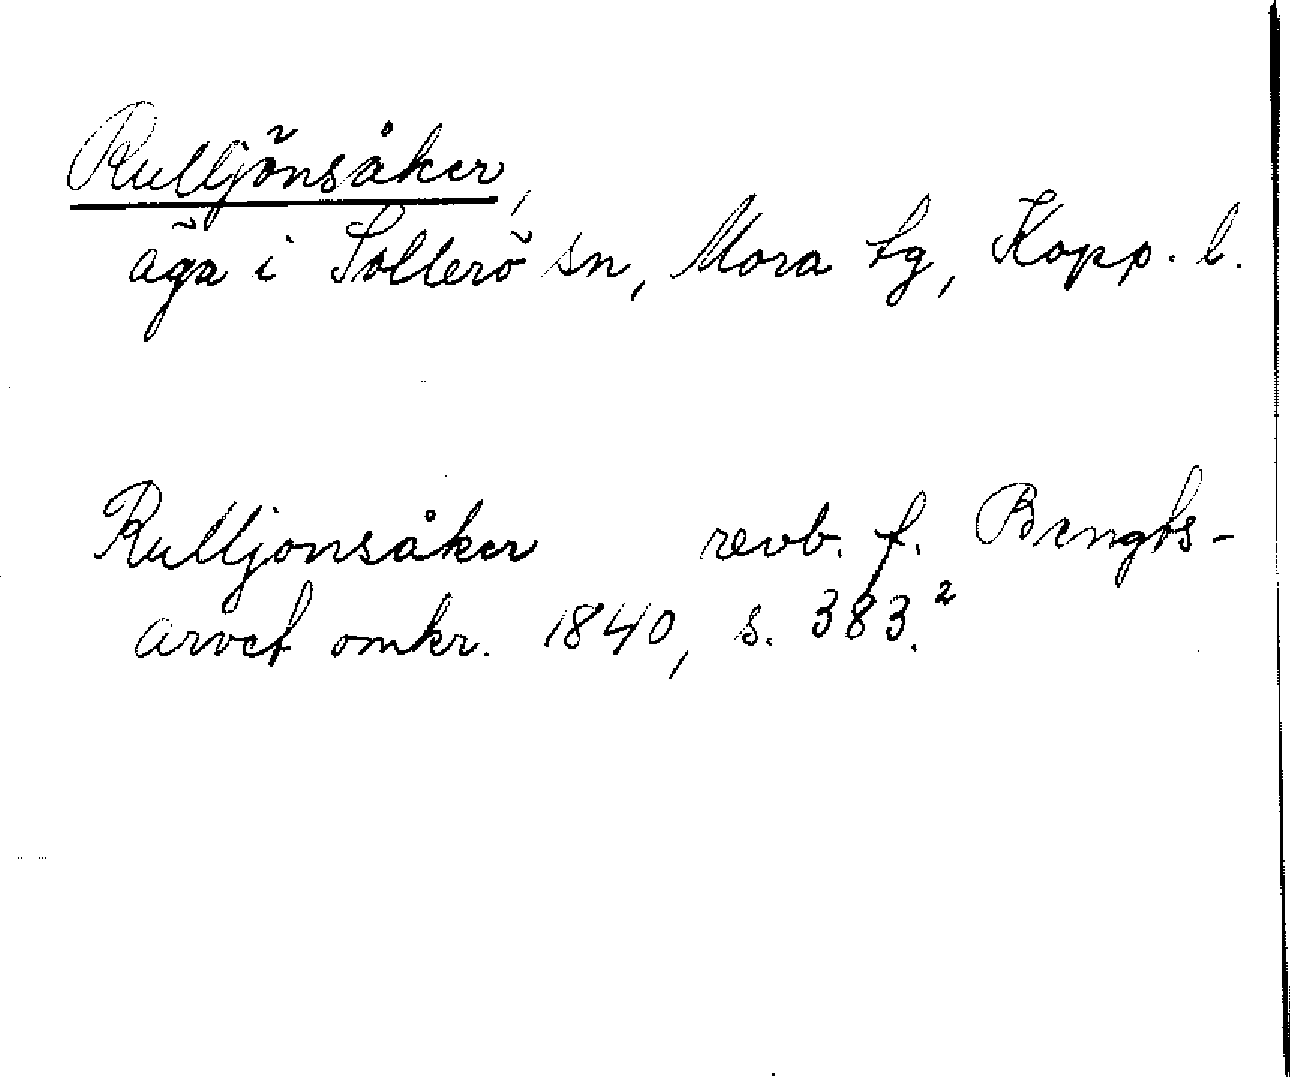 Rulljönsåker,
äga i Sollerö sn, Mora tg, Kopp. l.
Rulljonsåker revb. f. Bengts-
arvet omkr. 1840, s. 383.²